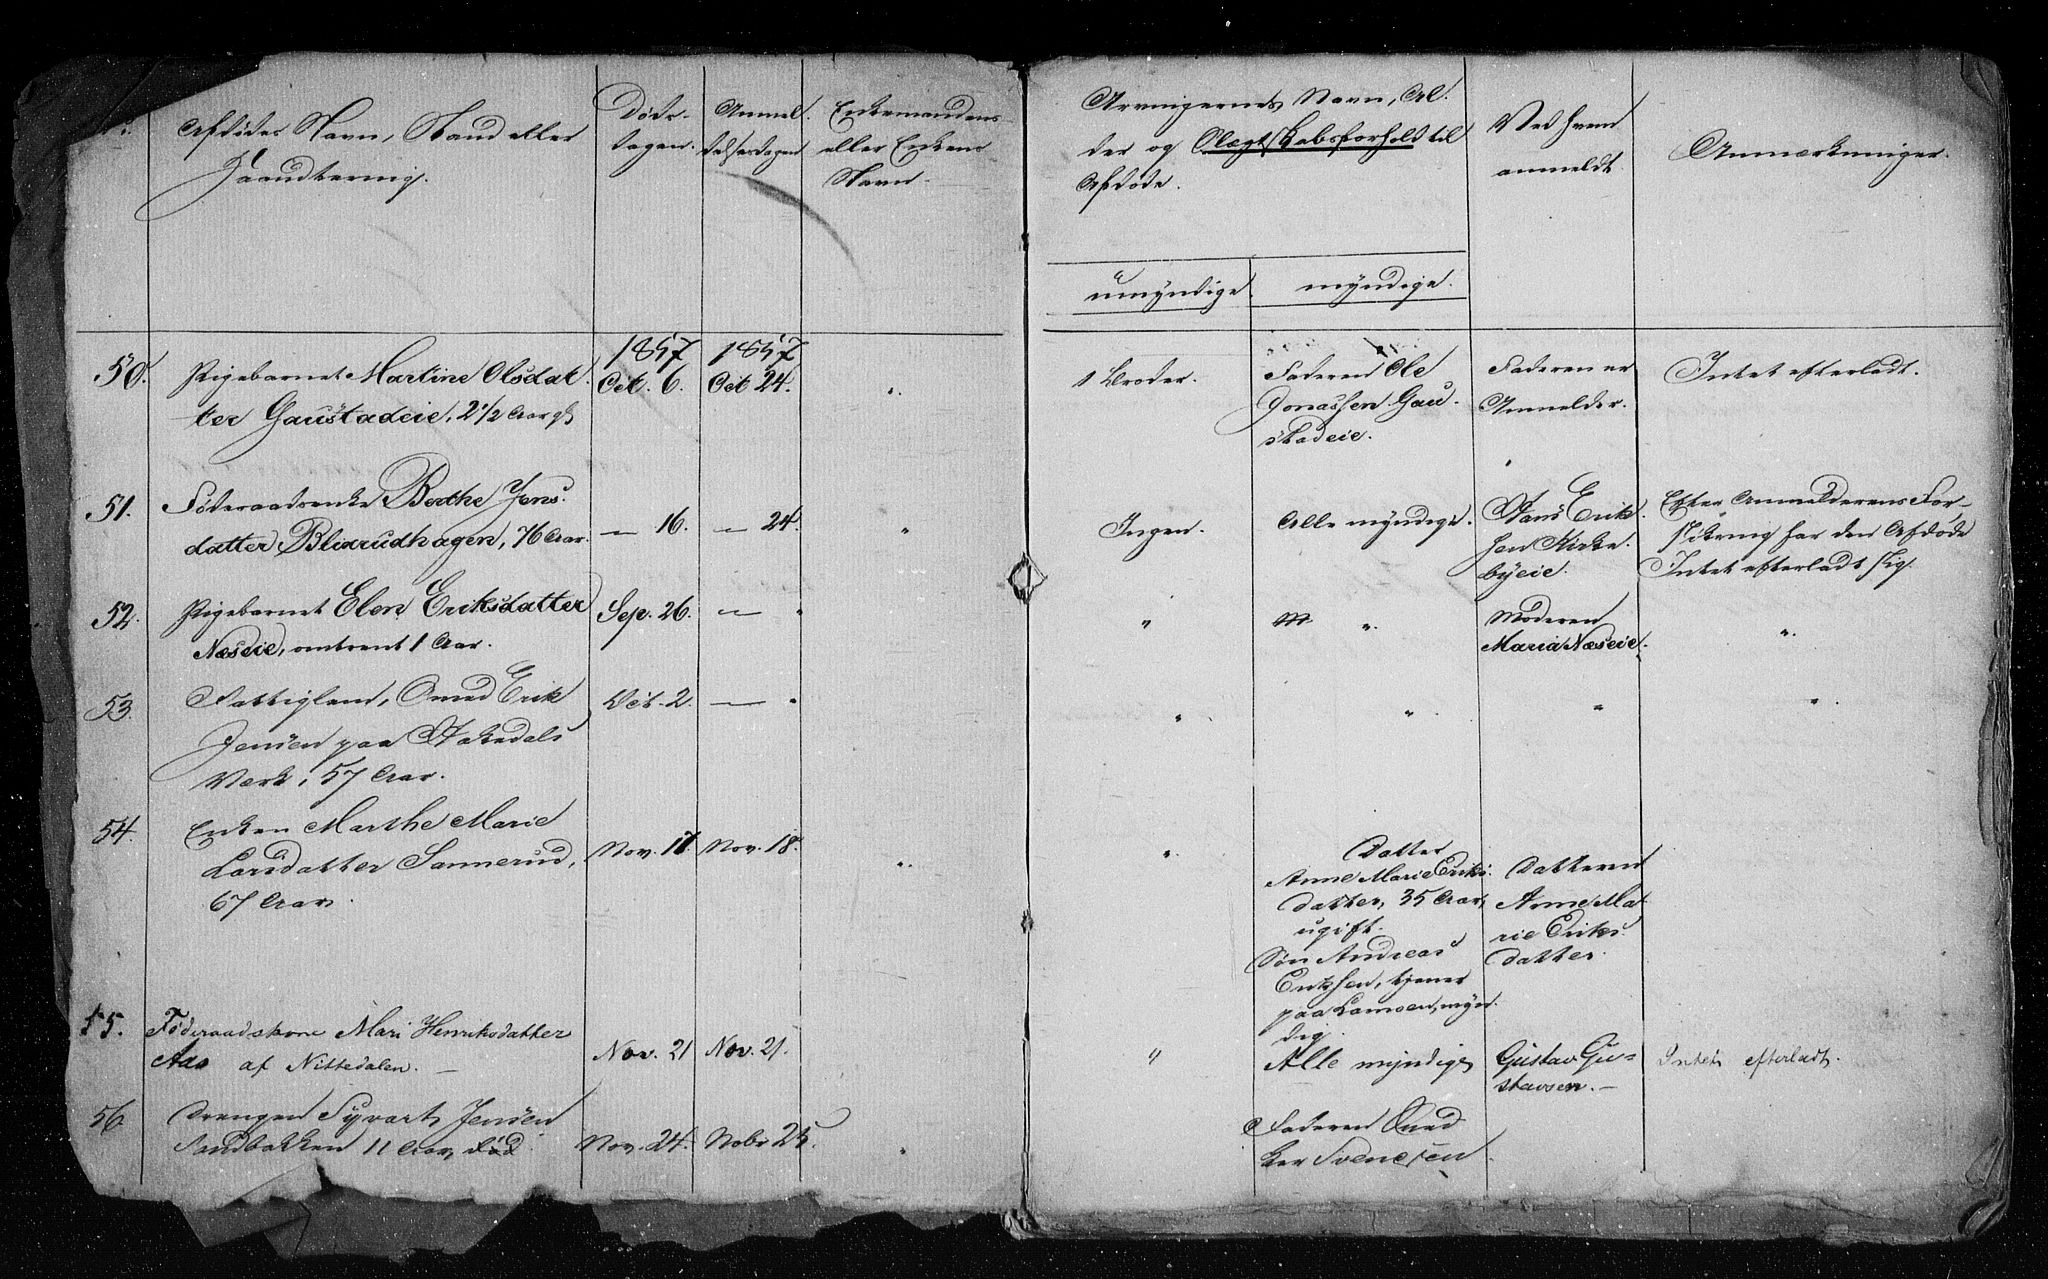 No.
Afdødes Navn, Stand eller
Haandtering.
Døds-
dagen.
Anmel-
delsesdagen
Enkemandens
eller Enkens
Navn.
Arvingernes Navn, Al-
der og Slægtskabsforhold til
Afdøde.
umyndige.
myndige.
Ved hvem
anmeldt.
Anmærkninger.
1857
1857
50.
Pigebarnet Martine Olsdat-
ter Gaustadeie, 2 1/2 Aar gl.
Oct. 6.
Oct. 24.
"
1 Broder.
Faderen Ole
Jonassen Gau-
stadeie.
Faderen er
Anmelder.
Intet efterladt.
51.
Føderaadsenke Berthe Jens-
datter Blixrudhagen, 76 Aar.
— 16.
— 24.
"
Ingen.
Alle myndige.
Hans Erik-
sen Kirke-
byeie.
Efter Anmelderens For-
sikring har den Afdøde
Intet efterladt sig.
52.
Pigebarnet Elen Eriksdatter
Næseie, omtrent 1 Aar.
Sep. 26.
— "
"
"
Moderen
Maria Næseie.
"
53.
Fattiglem, Smed Erik
Jensen paa Hakedals
Værk, 57 Aar.
Oct. 2.
— "
"
"
"
"
54.
Enken Marthe Marie
Larsdatter Sannerud,
67 Aar.
Nov. 17.
Nov. 18.
"
"
Datter
Anne Marie Eriks-
datter, 35 Aar,
ugift.
Søn Andreas
Eriksen, tjener
paa myn-
dig.
Datteren
Anne Ma-
rie Eriks-
datter.
55.
Føderaadskone Mari Henriksdatter
Aas af Nittedalen. —
Nov. 21
Nov. 21.
"
Alle myndige
Gustav Gu-
stavsen. —
Intet efterladt.
56.
Drengen Syvart Jensen
Sandbakken 11 Aar, død
Nov. 24.
Nobr 25.
"
Faderen
Svensen.